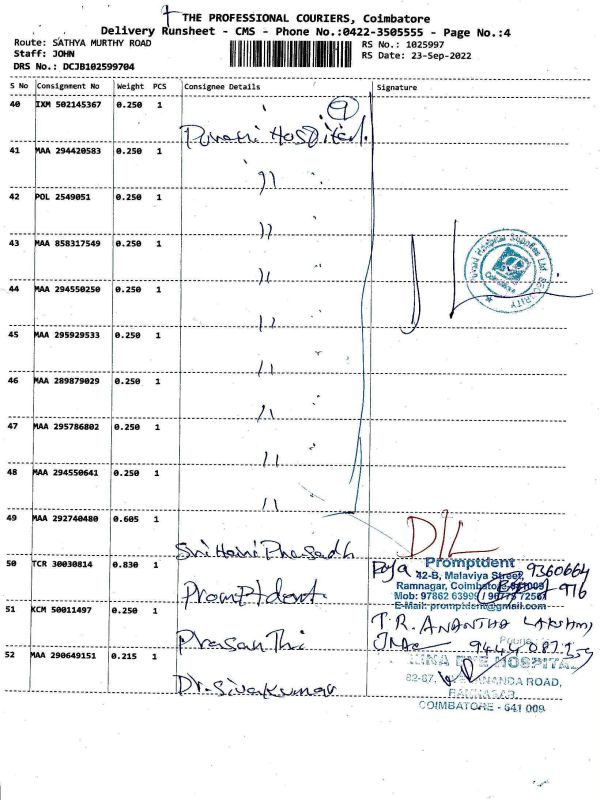 THE PROFESSIONAL COURIERS, Coimbatore
Delivery Runsheet - CMS - Phone No.:0422-3505555 - Page No.:4
Route: SATHYA MURTHY ROAD
Staff: JOHN
DRS No.: DCJB102599704
RS No.: 1025997
RS Date: 23-Sep-2022
S No Consignment No Weight PCS Consignee Details Signature
40 IXM 502145367 0.250 1
9
Hospital
41 MAA 294420583 0.250 1
42 POL 2549051 0.250 1
43 MAA 858317549 0.250 1
44 MAA 294550250 0.250 1
45 MAA 295929533 0.250 1
46 MAA 289879029 0.250 1
47 MAA 295786802 0.250 1
48 MAA 294550641 0.250 1
49 MAA 292740480 0.605 1
D/L
50 TCR 30030814 0.830 1
Promptdent
Promptdent
42-B, Malaviya Street,
Ramnagar, Coimbatore-641009
9360664
916
51 KCM 50011497 0.250 1
E-Mail: promptdent@gmail.com
Prasanthi
T.R. ANANTHA LAKSHMI
52 MAA 290649151 0.215 1
Dr. Sivakumar
EYE HOSPITAL
ROAD,
RAMNAGAR,
COIMBATORE - 641 009